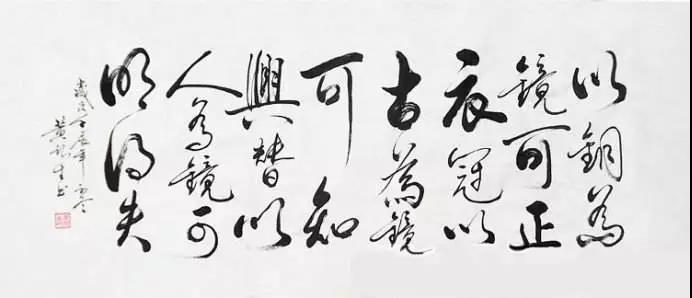 以銅為
鏡可正
衣冠以
古為鏡
可知
興替以
人為鏡可
明得失
歲次壬辰年
黃